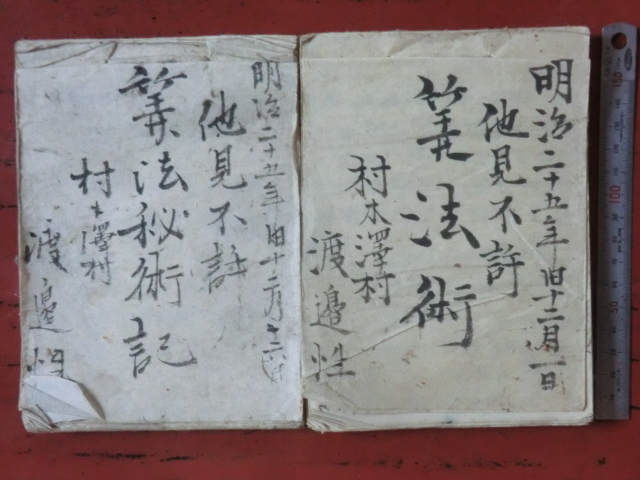 明治二十五年旧十二月一日
他見不許
筭法術
村木澤村
渡邉性
明治二十五年旧十二月十六日
他見不許
筭法秘術記
村木澤村
渡邉性